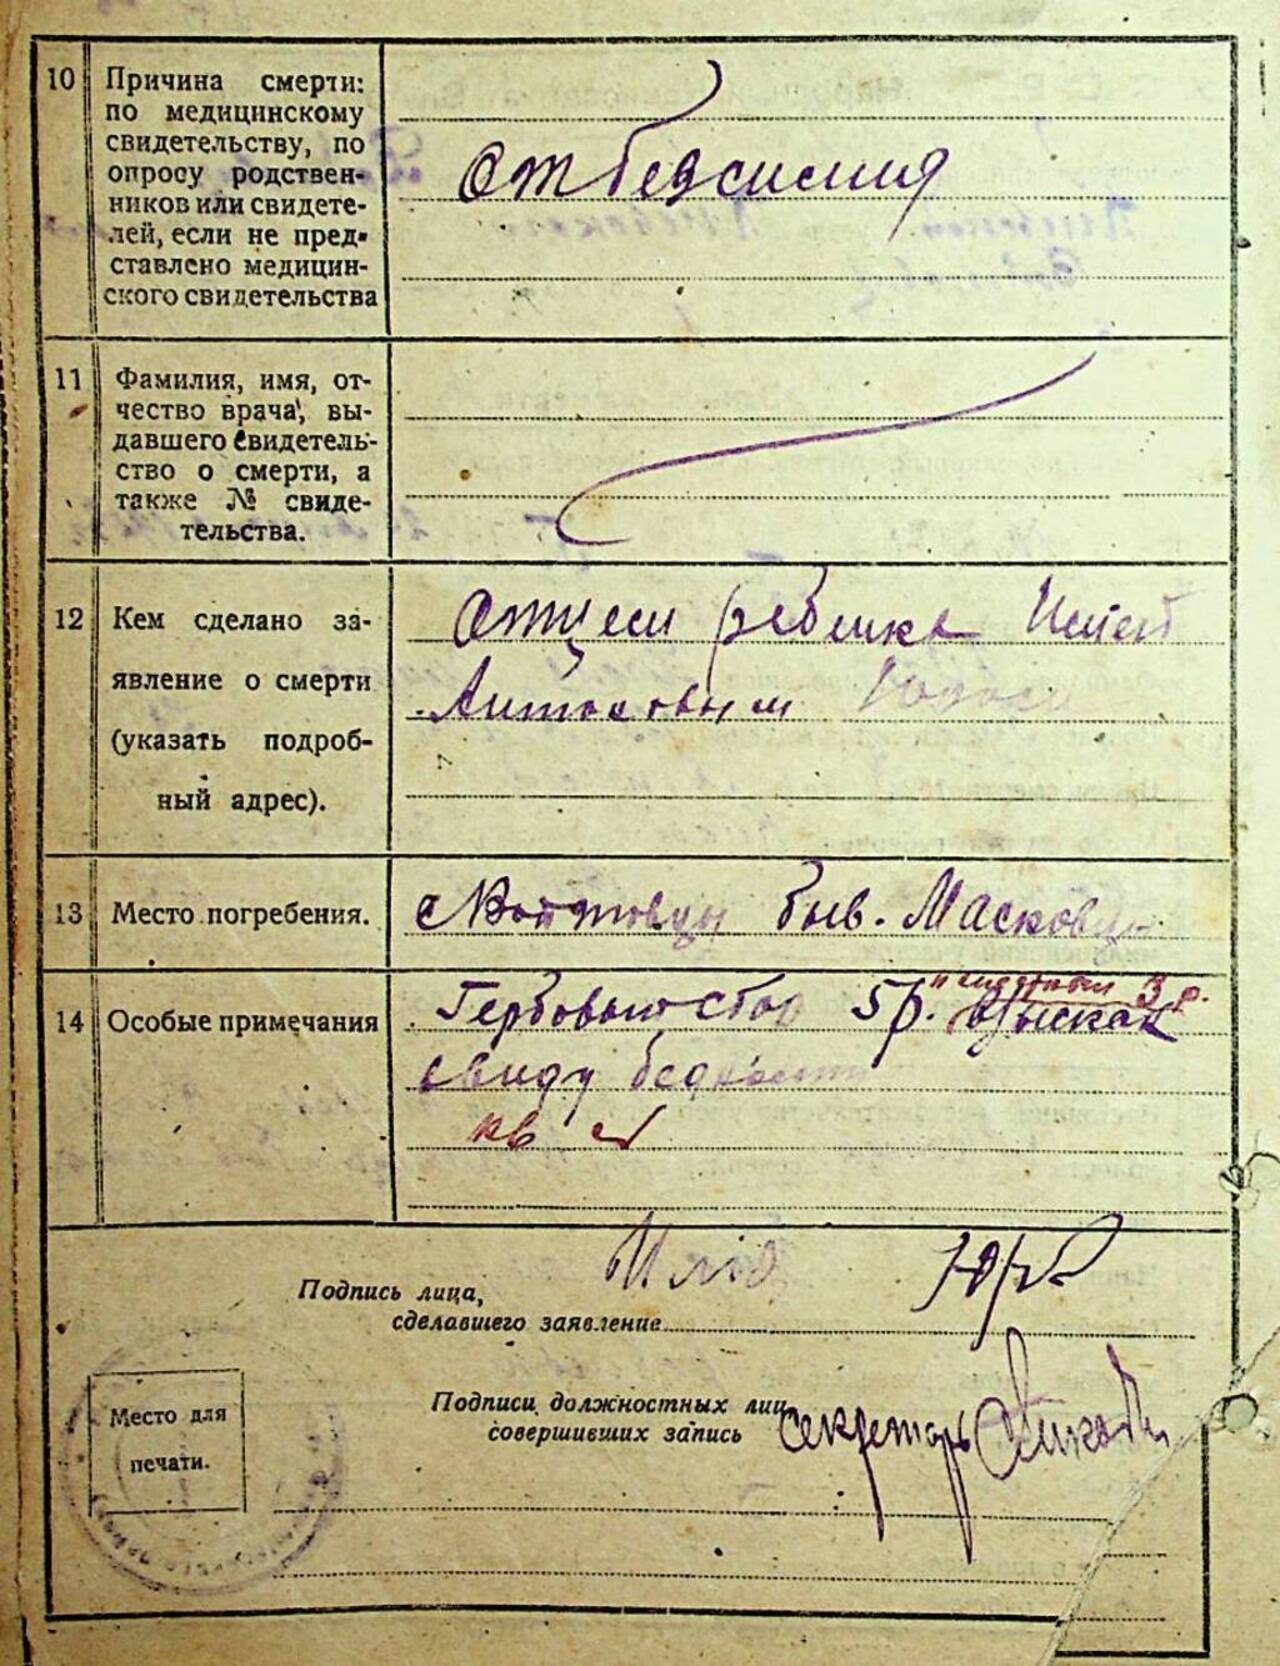 10 Причина смерти:
по медицинскому
свидетельству, по
опросу родствен-
ников или свидете-
лей, если не пред-
ставлено медицин-
ского свидетельства
от безсилия
11 Фамилия, имя, от-
чество врача, вы-
давшего свидетель-
ство о смерти, а
также № свиде-
тельства.
12 Кем сделано за-
явление о смерти
(указать подроб-
ный адрес).
Отцем ребенка
Антоновым
13 Место погребения.
быв. Масковцы
14 Особые примечания
Гербовый сбор 5 р. взыскан
ввиду бедности
кв
Подпись лица,
сделавшего заявление
Подписи должностных лиц,
совершивших запись секретарь
Место для
печати.